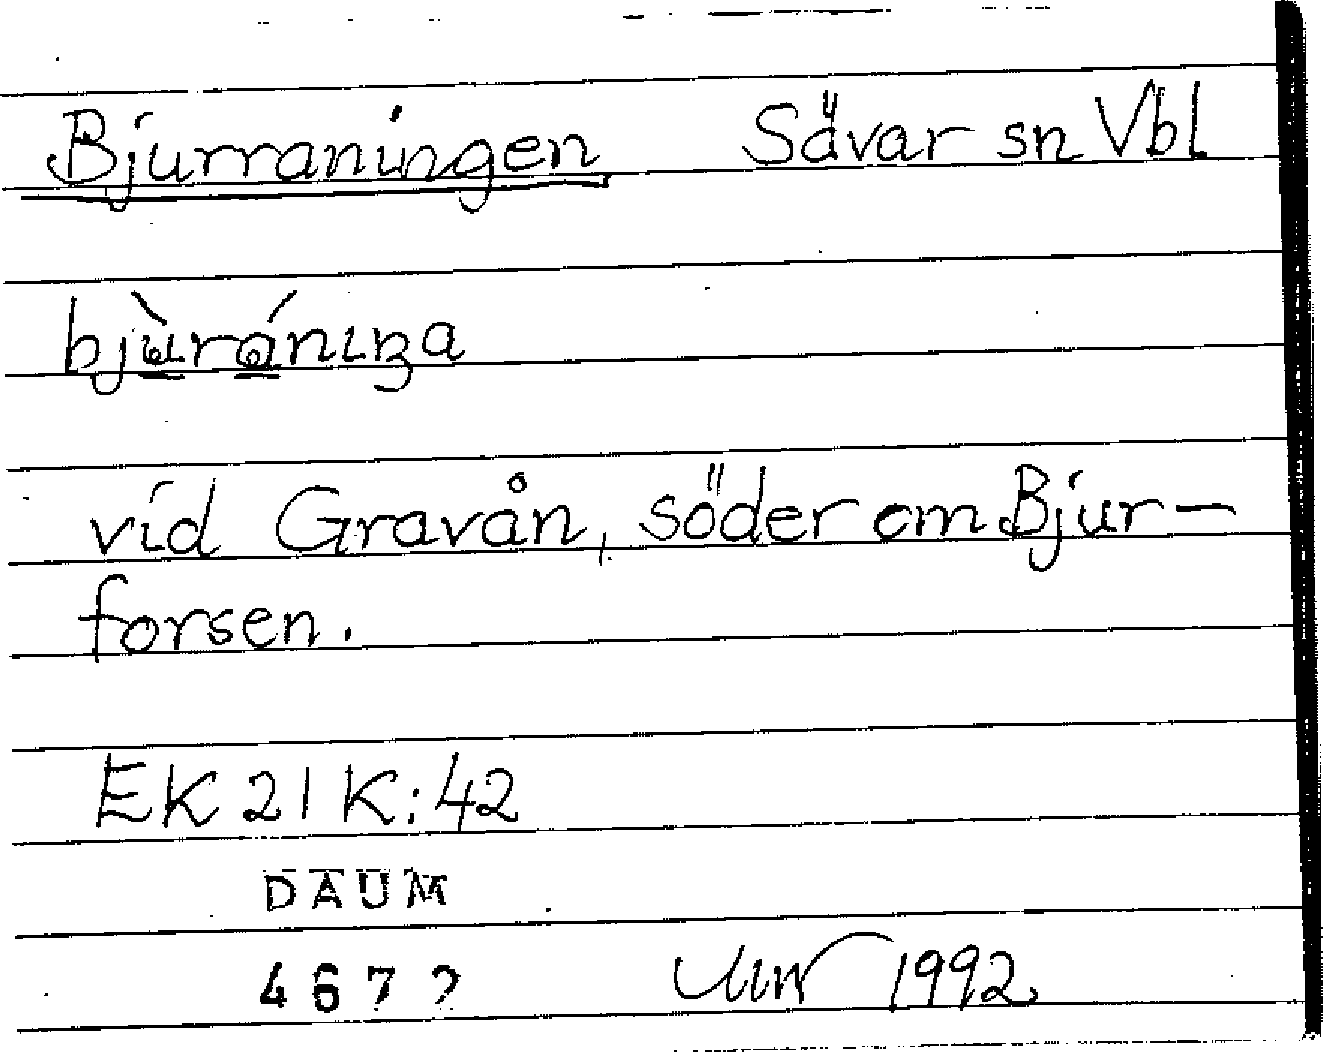 Bjurraningen Sävar sn Vbl
vid Gravån, söder om Bjur-
forsen.
EK 21 K:42
DAUM
467?
1992